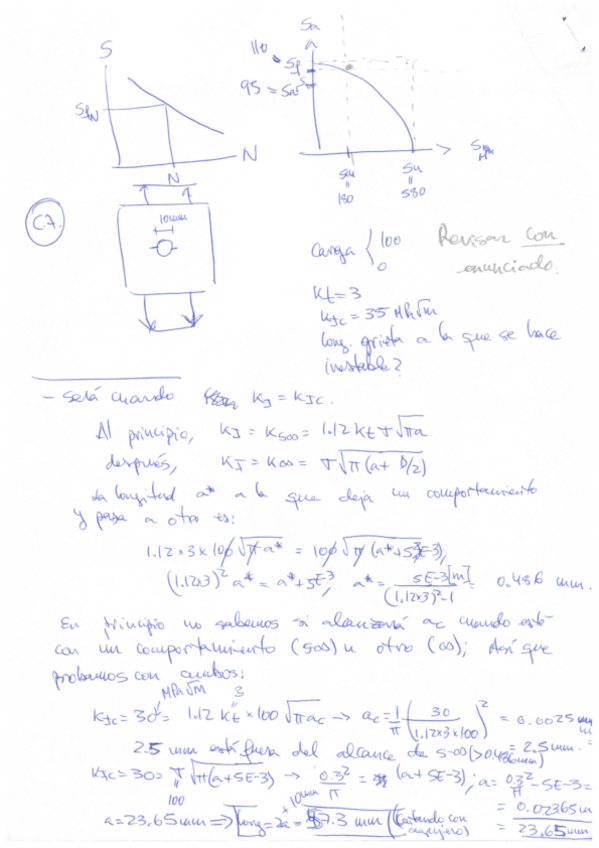 S
SfN
N
N
Sa
110
Sf
95 = Sa
Sm
Sm
"
180
Su
"
580
C.7.
10mm
Carga { 100
0
Revisar con
enunciado.
Kt = 3
KIC = 35 MPa√m
long. grieta a la que se hace
inestable?
- Será cuando KI = KIC.
Al principio, KI = K500 = 1.12 Kt σ √πa
después, KI = K∞ = σ √π(a + D/2)
La longitud a* a la que deja un comportamiento
y pasa a otro es:
1.12×3×100 √π a* = 100 √π (a*+5E-3);
(1.12×3)² a* = a*+5E-3; a* = 5E-3[m] / (1.12×3)²-1 = 0.486 mm.
En principio no sabemos si alcanzará ac cuando esté
con un comportamiento (500) u otro (∞); Así que
probamos con ambos:
MPa√m 3
KIC = 30 = 1.12 Kt × 100 √πac → ac = 1/π (30 / 1.12×3×100)² = 0.0025 m
= 2.5 mm.
2.5 mm está fuera del alcance de 500 (>0.486mm)
KIC = 30 = σ √π(a+5E-3) → 0.3²/π = (a+5E-3); a = 0.3²/π - 5E-3 =
100
= 0.02365 m
a = 23.65mm ⇒ Long = 2a + 10mm = 57.3 mm (Contando con
agujero)
= 23.65 mm